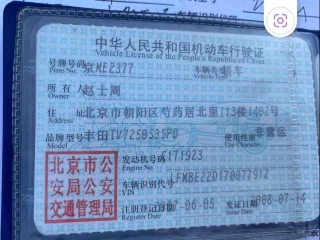 中华人民共和国机动车行驶证
Vehicle License of the People's Republic of China
号牌号码 京ME2377 车辆类型 轿车
Plate No. Vehicle Type
所有人 赵士周
Owner
住址 北京市朝阳区芍药居北里113楼1402号
Address
品牌型号 丰田TV7250S3SPD 使用性质 非营运
Model
发动机号码 171923
Engine No.
北京市公
安局公安
交通管理局
车辆识别代号 LFMBE22D170077912
VIN
注册登记日期 07-06-05 发证日期 2008-07-14
Register Date Issue Date